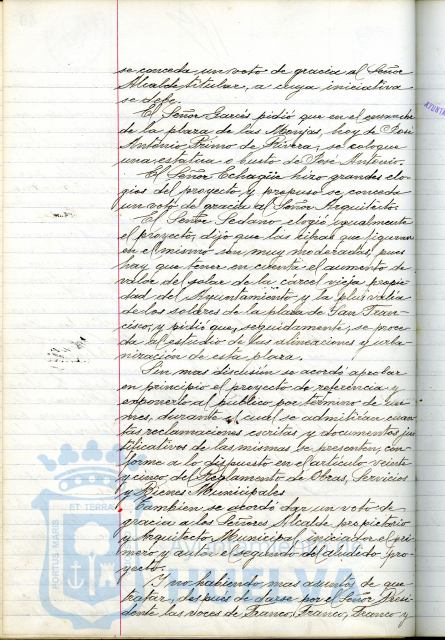 se conceda un voto de gracia al Señor
Alcalde titular, a cuya iniciativa
se debe.
El Señor Garcés pidió que en el ensanche
de la plaza de las Monjas, hoy de José
Antonio Primo de Rivera, se coloque
una estatua o busto de José Antonio.
El Señor Echagüe hizo grandes elo-
gios del proyecto y propuso se conceda
un voto de gracia al Señor Arquitecto.
El Señor Sedano elogió igualmente
el proyecto, dijo que las cifras que figuran
en el mismo son muy moderadas, pues
hay que tener en cuenta el aumento de
valor del solar de la carcel vieja propie-
dad del Ayuntamiento y la plus valía
de los solares de la plaza de San Fran-
cisco, y pidió que, seguidamente, se proce-
da al estudio de las alineaciones y urba-
nización de esta plaza.
Sin mas discusión se acordó aprobar
en principio el proyecto de referencia y
exponerlo al público por término de un
mes, durante el cual se admitirán cuan-
tas reclamaciones escritas y documentos jus-
tificativos de las mismas se presenten, con-
forme a lo dispuesto en el artículo veinte
y cinco del Reglamento de Obras, Servicios
y Bienes Municipales
Tambien se acordó dar un voto de
gracia a los Señores Alcalde propietario
y Arquitecto Municipal, iniciador el pri-
mero y autor el segundo del aludido pro-
yecto.
Y no habiendo mas asuntos de que
tratar, después de darse por el Señor Presi-
dente las voces de Franco, Franco, Franco y
PORTUS MARIS
ET TERRAE
AYUNTA